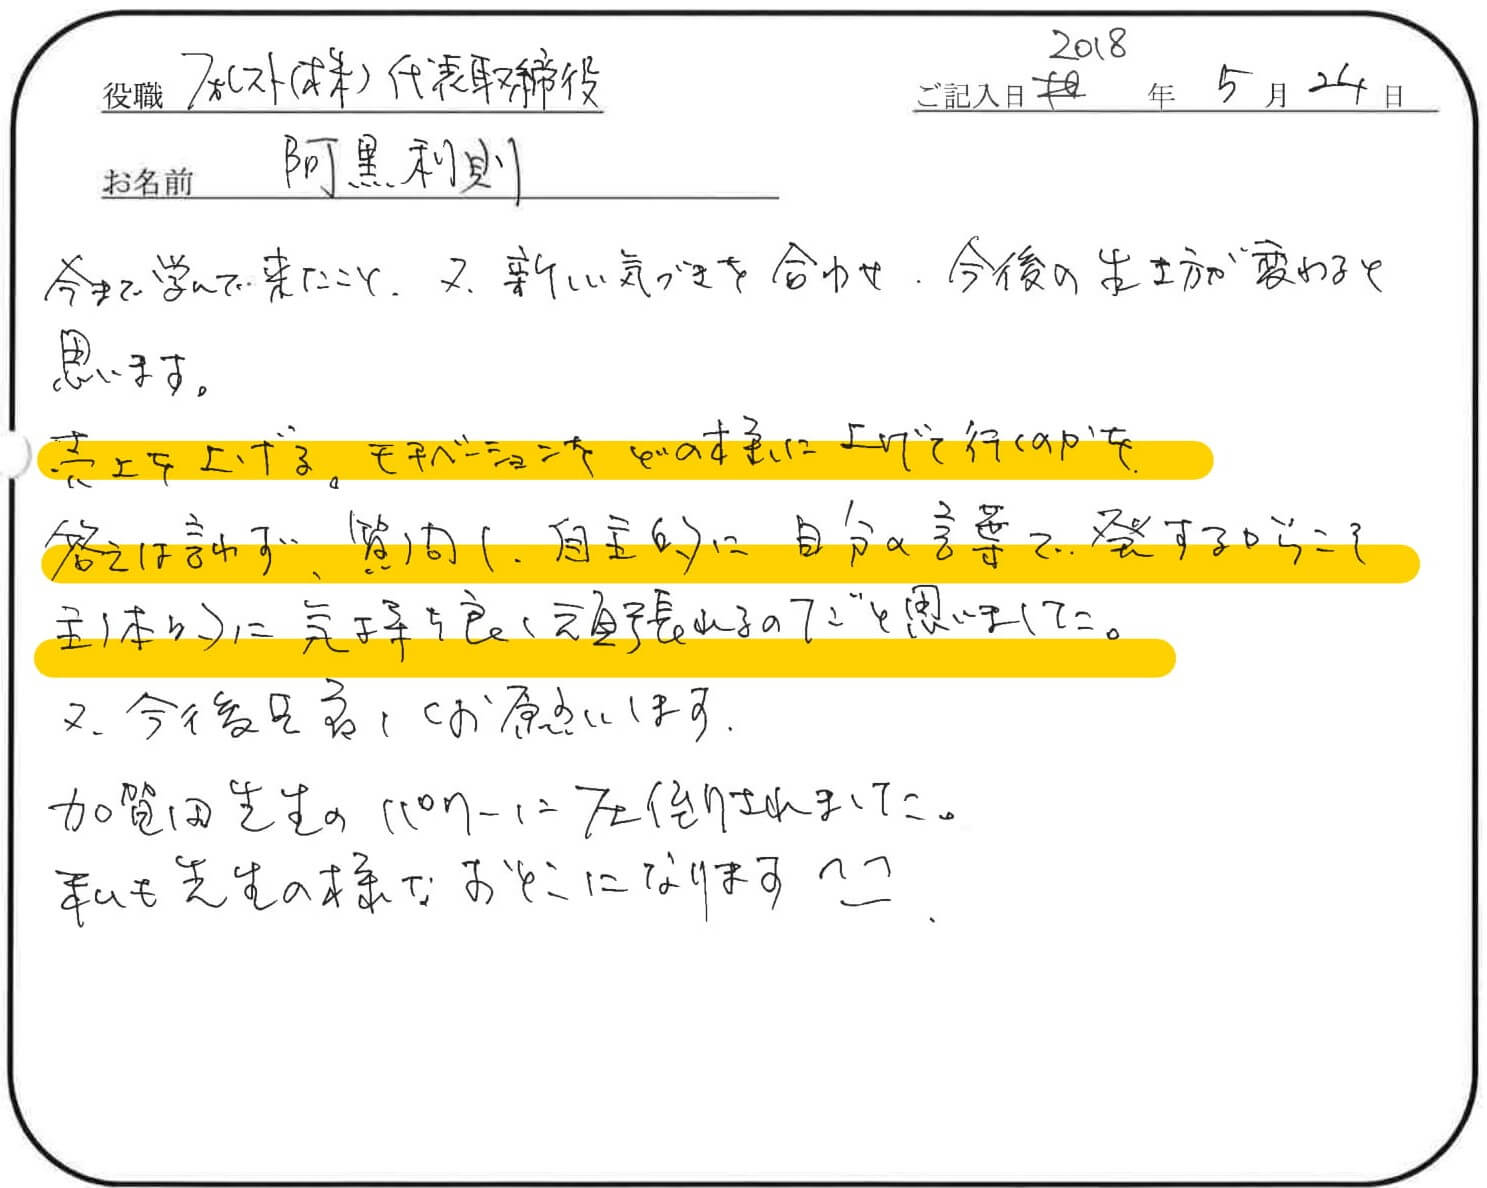 役職 フォレスト(株) 代表取締役
ご記入日 2018 年 5 月 24 日
お名前 阿黒利則
今まで学んで来たこと、又、新しい気づきを合わせ、今後の生き方が変わると
思います。
売上を上げる。モチベーションをどの様に上げて行くのかを
答えは言わず、質問し、自主的に自分の言葉で発するからこそ
主体的に気持ち良く頑張れるのだと思いました。
又、今後共宜しくお願いします。
加賀田先生のパワーに圧倒されました。
私も先生の様なおとこになります